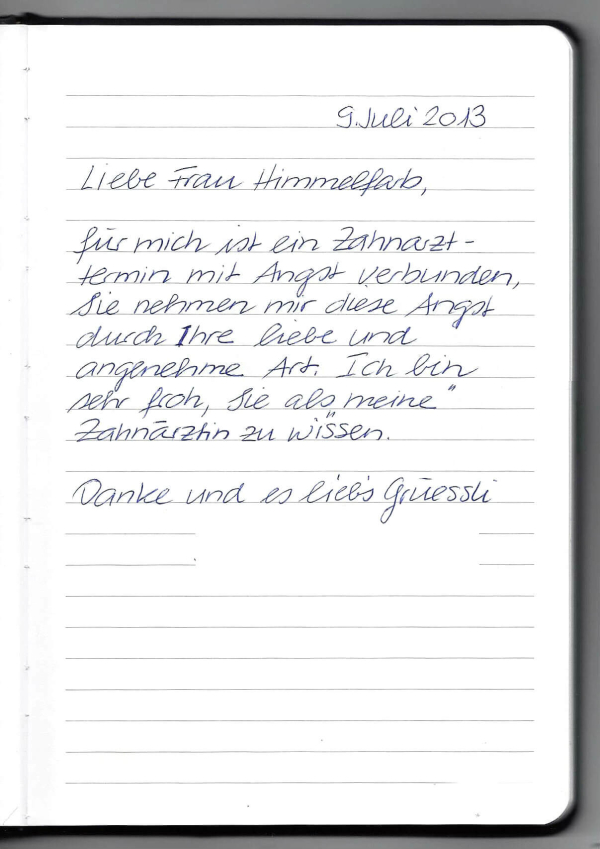 9. Juli 2013
Liebe Frau Himmelfarb,
für mich ist ein Zahnarzt-
termin mit Angst verbunden,
Sie nehmen mir diese Angst
durch Ihre liebe und
angenehme Art. Ich bin
sehr froh, Sie als "meine"
Zahnärztin zu wissen.
Danke und es lieb's Grüessli